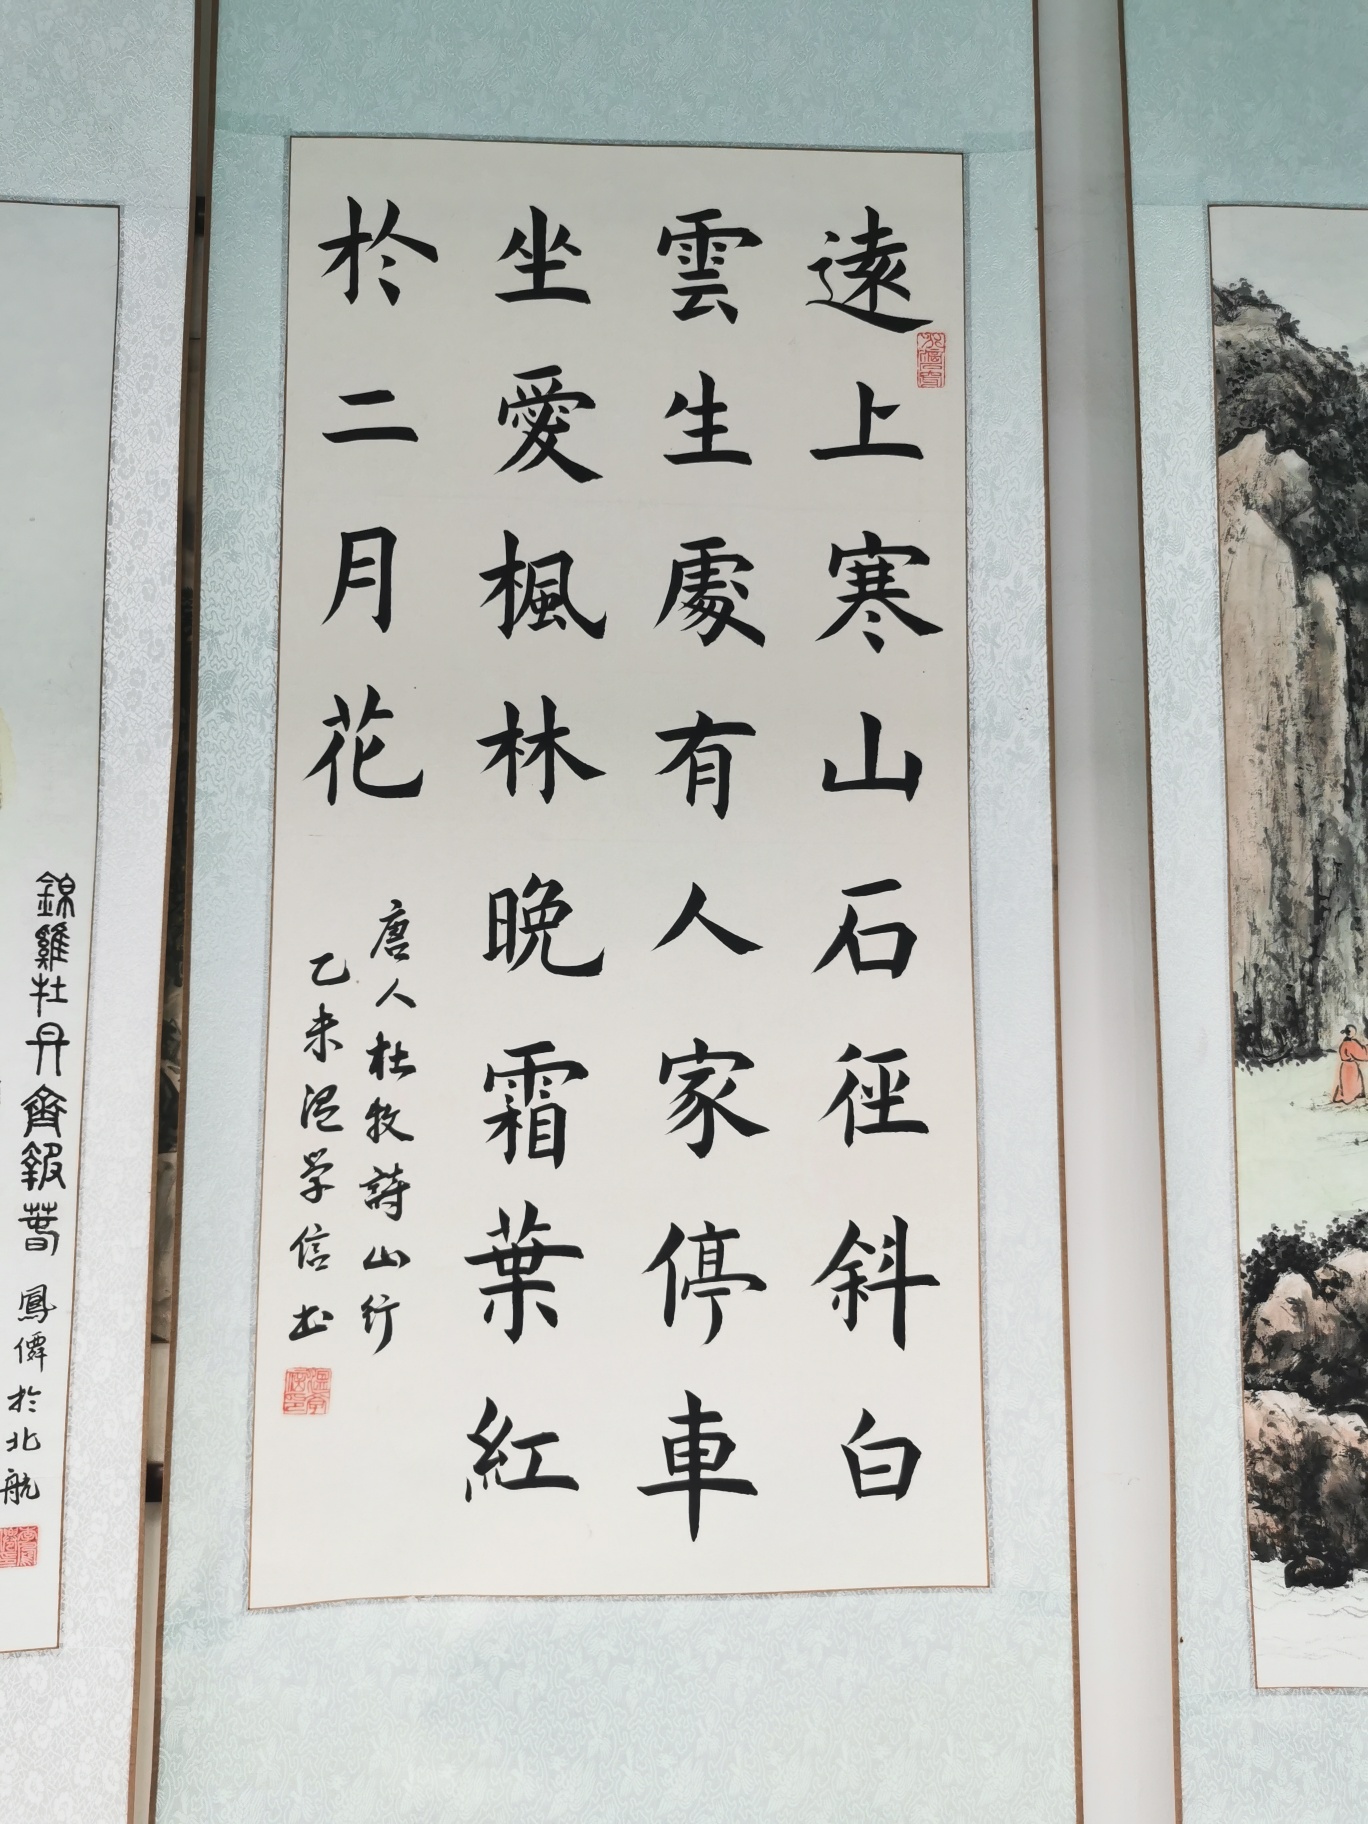 遠上寒山石徑斜白
雲生處有人家停車
坐愛楓林晚霜葉紅
於二月花
唐人杜牧詩山行
乙未温学信书
錦雞牡丹齊報春
鳳儛於北航